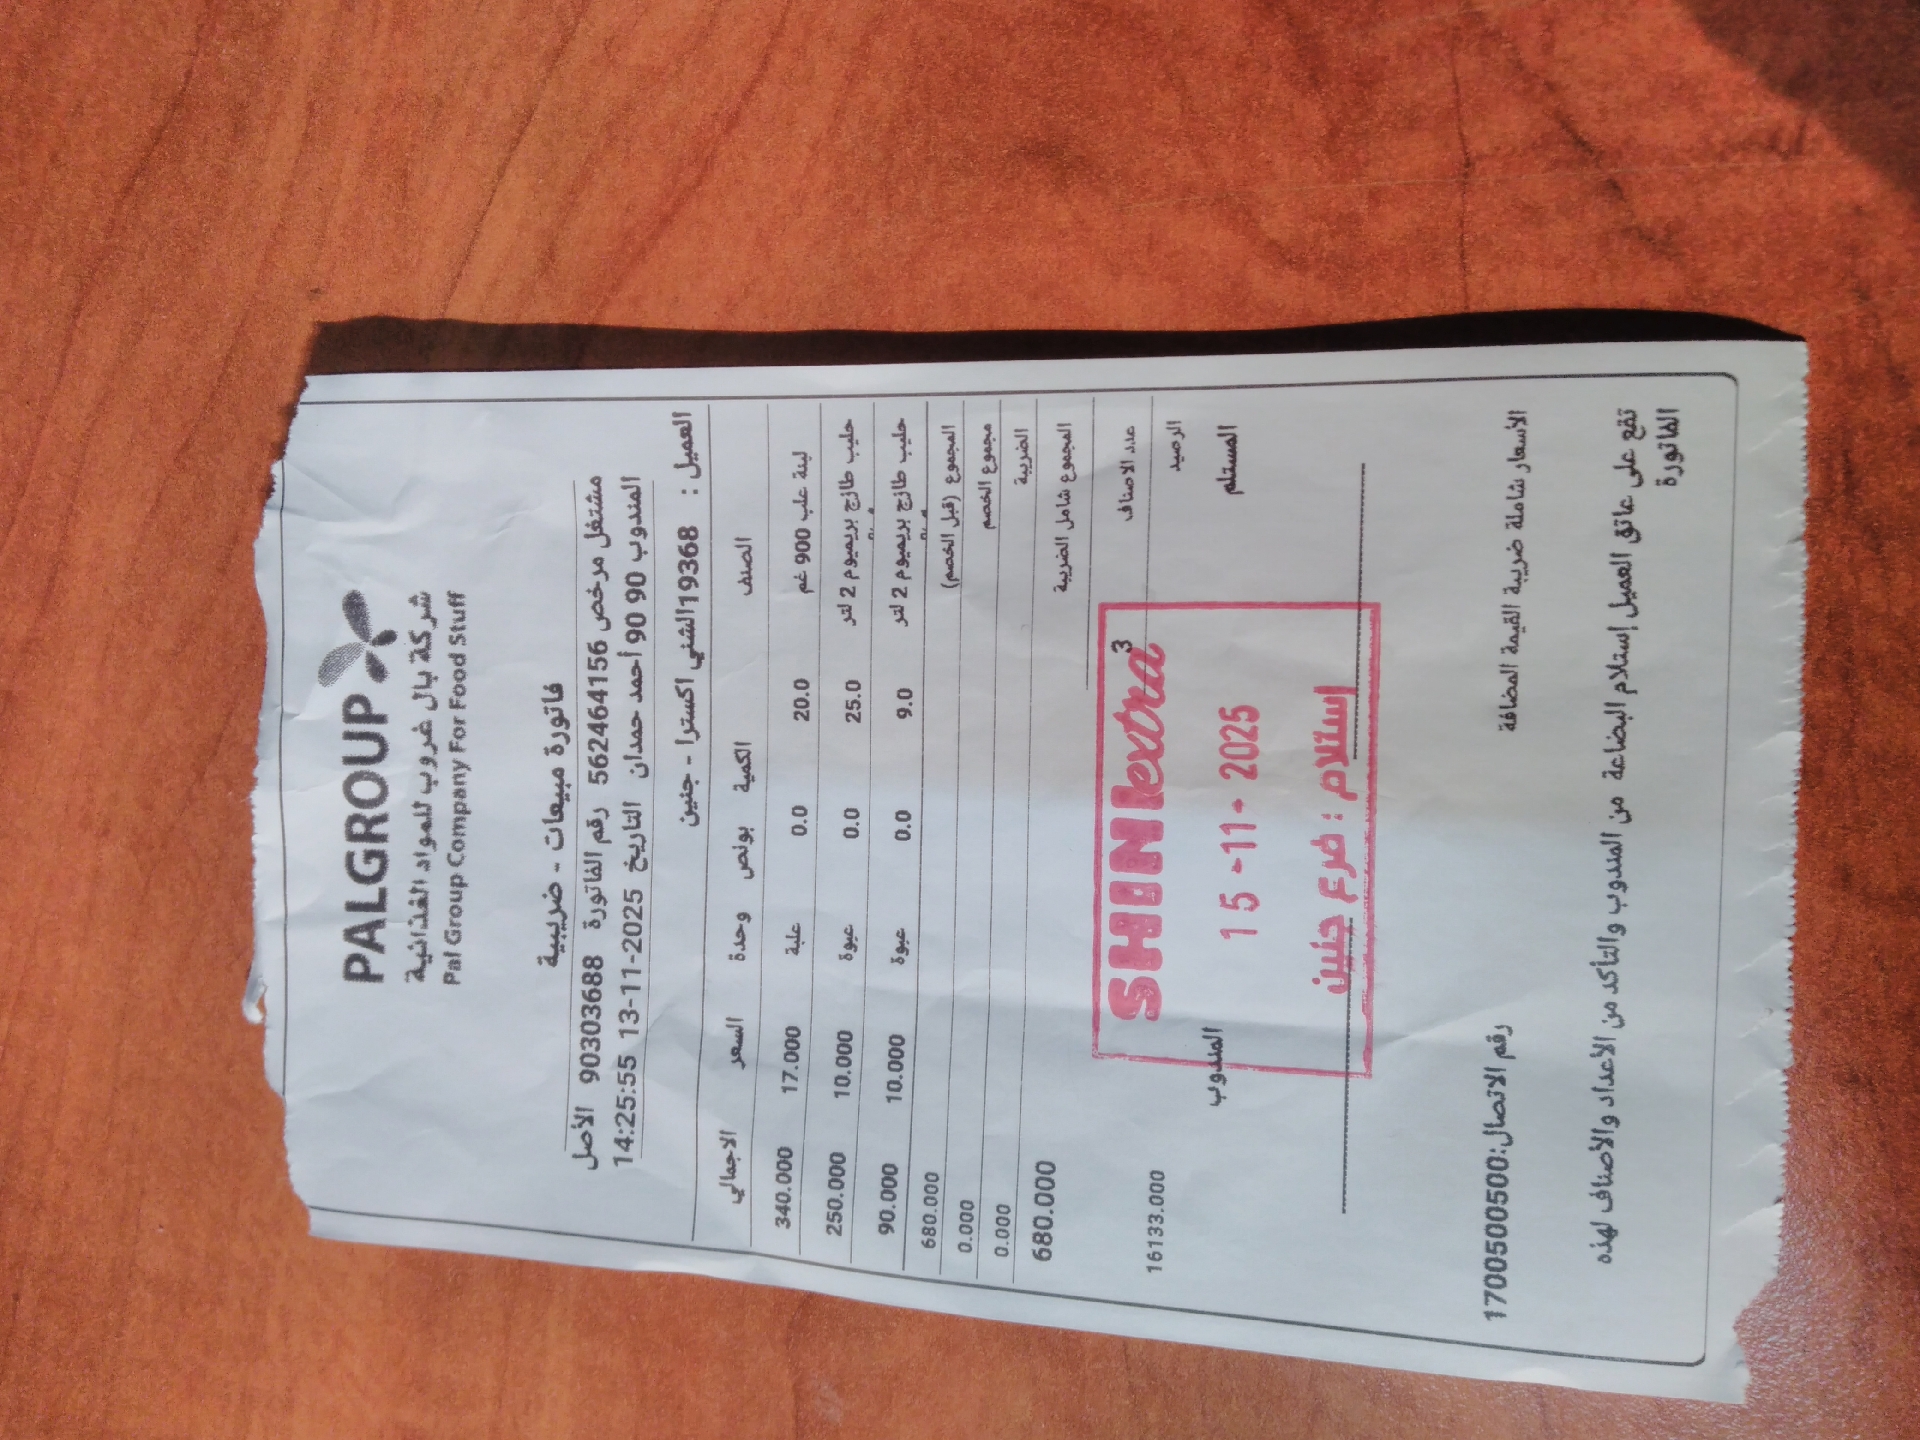 PALGROUP
شركة بال غروب للمواد الغذائية
Pal Group Company For Food Stuff
فاتورة مبيعات - ضريبية
مشتغل مرخص 562464156 رقم الفاتورة 90303688 الأصل
المندوب 90 90 أحمد حمدان التاريخ 2025-11-13 14:25:55
العميل : 19368الشني اكسترا - جنين
الصنف الكمية بونص وحدة السعر الاجمالي
لبنة علب 900 غم 20.0 0.0 علبة 17.000 340.000
حليب طازج بريميوم 2 لتر 25.0 0.0 عبوة 10.000 250.000
حليب طازج بريميوم 2 لتر 9.0 0.0 عبوة 10.000 90.000
المجموع (قبل الخصم) 680.000
مجموع الخصم 0.000
الضريبة 0.000
المجموع شامل الضريبة 680.000
عدد الاصناف 3
الرصيد 16133.000
المستلم المندوب
SHINI extra
15 -11- 2025
إستلام : فرع جنين
الأسعار شاملة ضريبة القيمة المضافة رقم الاتصال:1700500500
تقع على عاتق العميل إستلام البضاعة من المندوب والتأكد من الأعداد والاصناف لهذه
الفاتورة